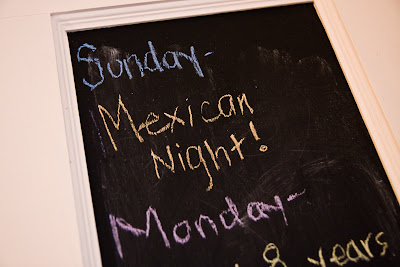 Sunday-
Mexican
Night!
Monday-
8 years